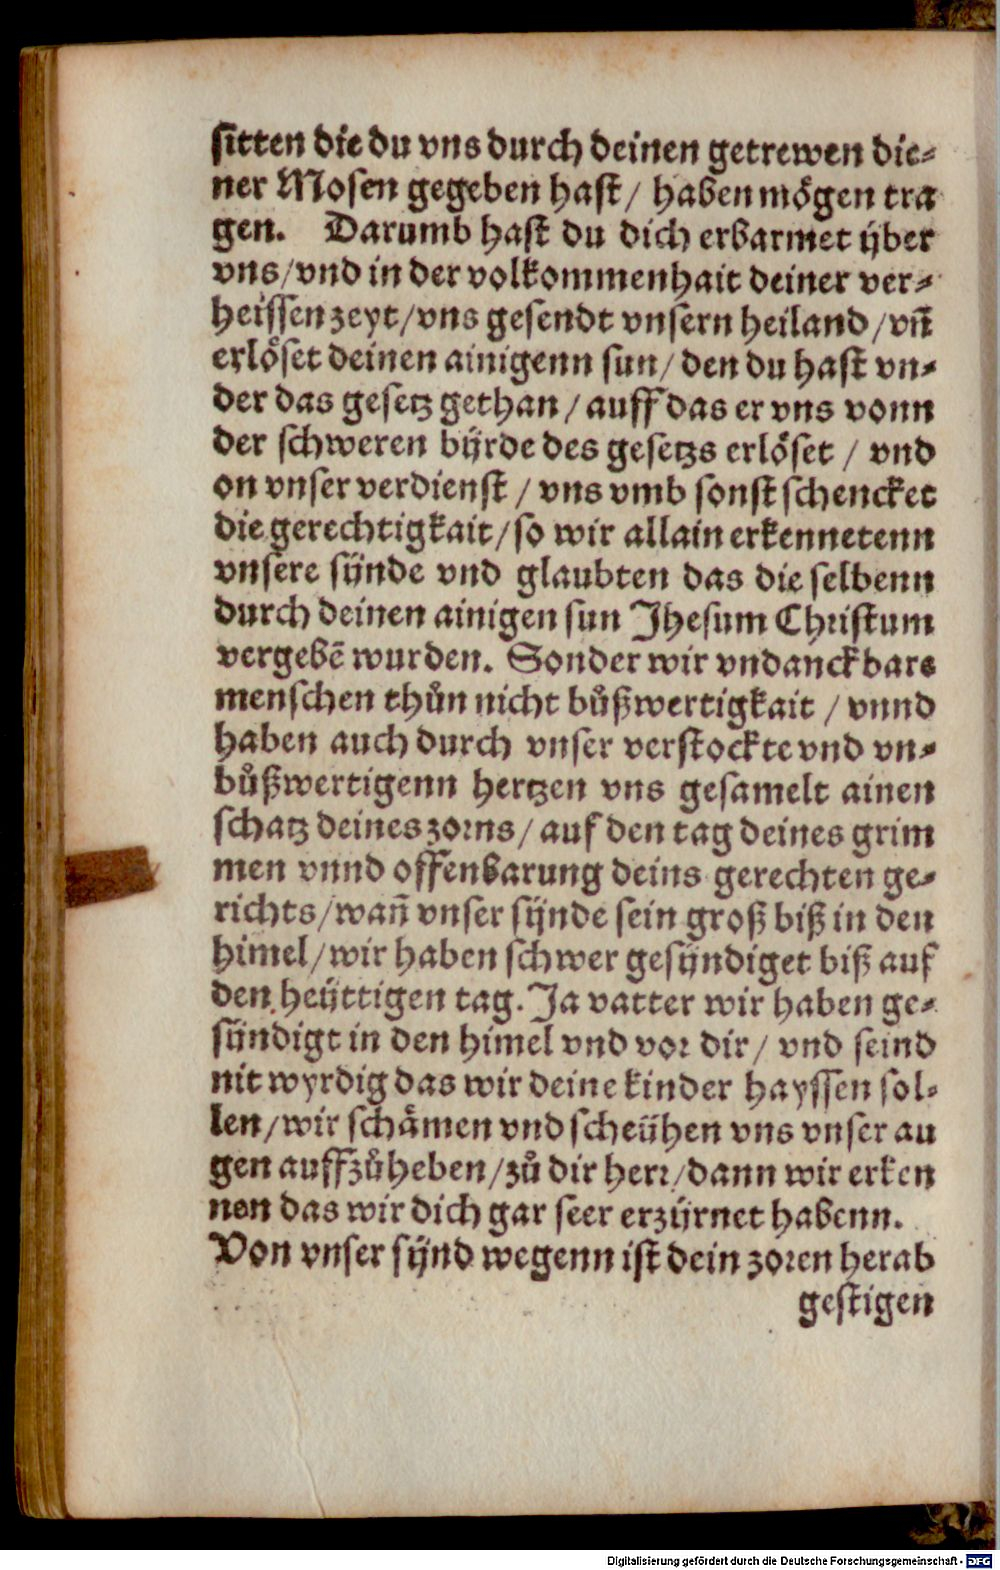 sitten die du vns durch deinen getrewen die⸗
ner Mosen gegeben hast / haben mögen tra
gen. Darumb hast du dich erbarmet ÿber
vns/vnd in der volkommenhait deiner ver⸗
heissen zeyt/vns gesendt vnsern heiland/vn̄
erlöset deinen ainigenn sun/ den du hast vn⸗
der das gesetz gethan / auff das er vns vonn
der schweren bÿrde des gesetzs erlöset / vnd
on vnser verdienst / vns vmb sonst schencket
die gerechtigkait/so wir allain erkennetenn
vnsere sÿnde vnd glaubten das die selbenn
durch deinen ainigen sun Jhesum Christum
vergebē wurden. Sonder wir vndanckbare
menschen thůn nicht bůßwertigkait / vnnd
haben auch durch vnser verstockte vnd vn⸗
bůßwertigenn hertzen vns gesamelt ainen
schatz deines zorns/ auf den tag deines grim
men vnnd offenbarung deins gerechten ge⸗
richts/wan̄ vnser sÿnde sein groß biß in den
himel/wir haben schwer gesÿndiget biß auf
den heÿttigen tag. Ja vatter wir haben ge⸗
sÿndigt in den himel vnd vor dir/ vnd seind
nit wyrdig das wir deine kinder hayssen sol⸗
len/wir schämen vnd scheÿhen vns vnser au
gen auffzůheben/zů dir herr/dann wir erken
nen das wir dich gar seer erzÿrnet habenn.
Von vnser sÿnd wegenn ist dein zoren herab
gestigen
Digitalisierung gefördert durch die Deutsche Forschungsgemeinschaft - DFG